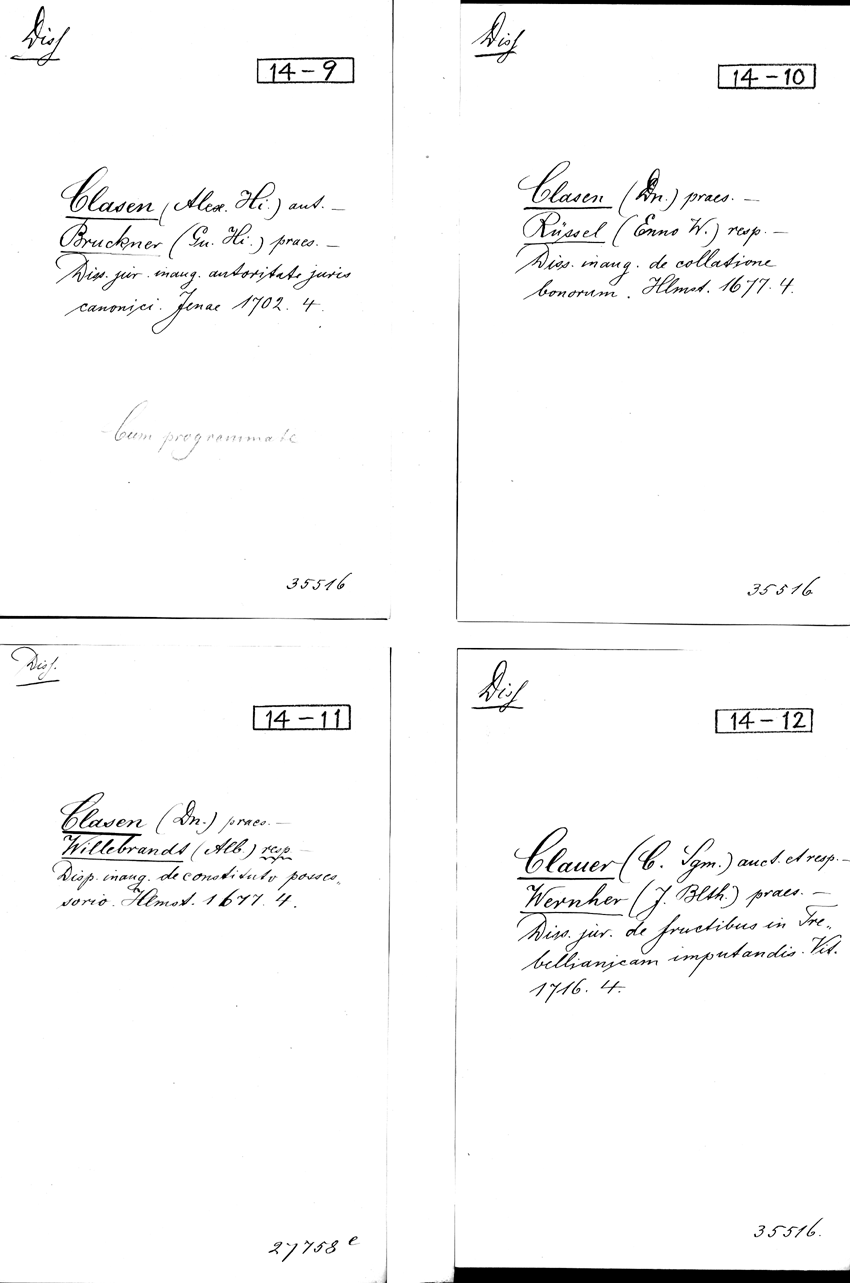 Diss
14-9
Clasen (Alex. Hi.) aut. —
Bruckner (Gu. Hi.) praes. —
Diss. jur. inaug. autoritate juris
canonici. Jenae 1702. 4.
Cum programmate
35516
Diss
14-10
Clasen (Dn.) praes. —
Rüssel (Enno W.) resp. —
Diss. inaug. de collatione
bonorum. Hlmst. 1677. 4.
35516
Diss.
14-11
Clasen (Dn.) praes. —
Willebrandt (Alb.) resp. —
Disp. inaug. de constituto posses„
sorio. Hlmst. 1677. 4.
27758 e
Diss
14-12
Clauer (C. Sgm.) auct. et resp. —
Wernher (J. Blth.) praes. —
Diss. jur. de fructibus in Tre„
bellianicam imputandis. Vit.
1716. 4.
35516.